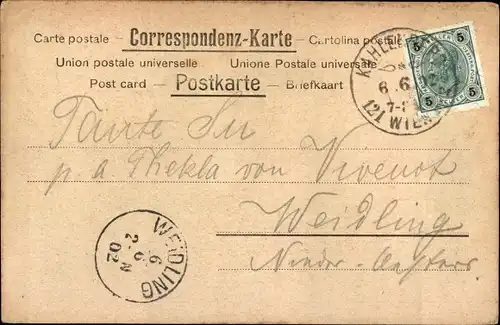 Carte postale – Correspondenz-Karte – Cartolina postale
Union postale universelle Unione Postale universale
Post card – Postkarte – Briefkaart
5 5
5 5
KAHLENBERG
6.6
7-
121 WIEN
Tante Su
p a Thekla von Vivenot
Weidling
Nieder-Oesterr
WEIDLING
6.6
02